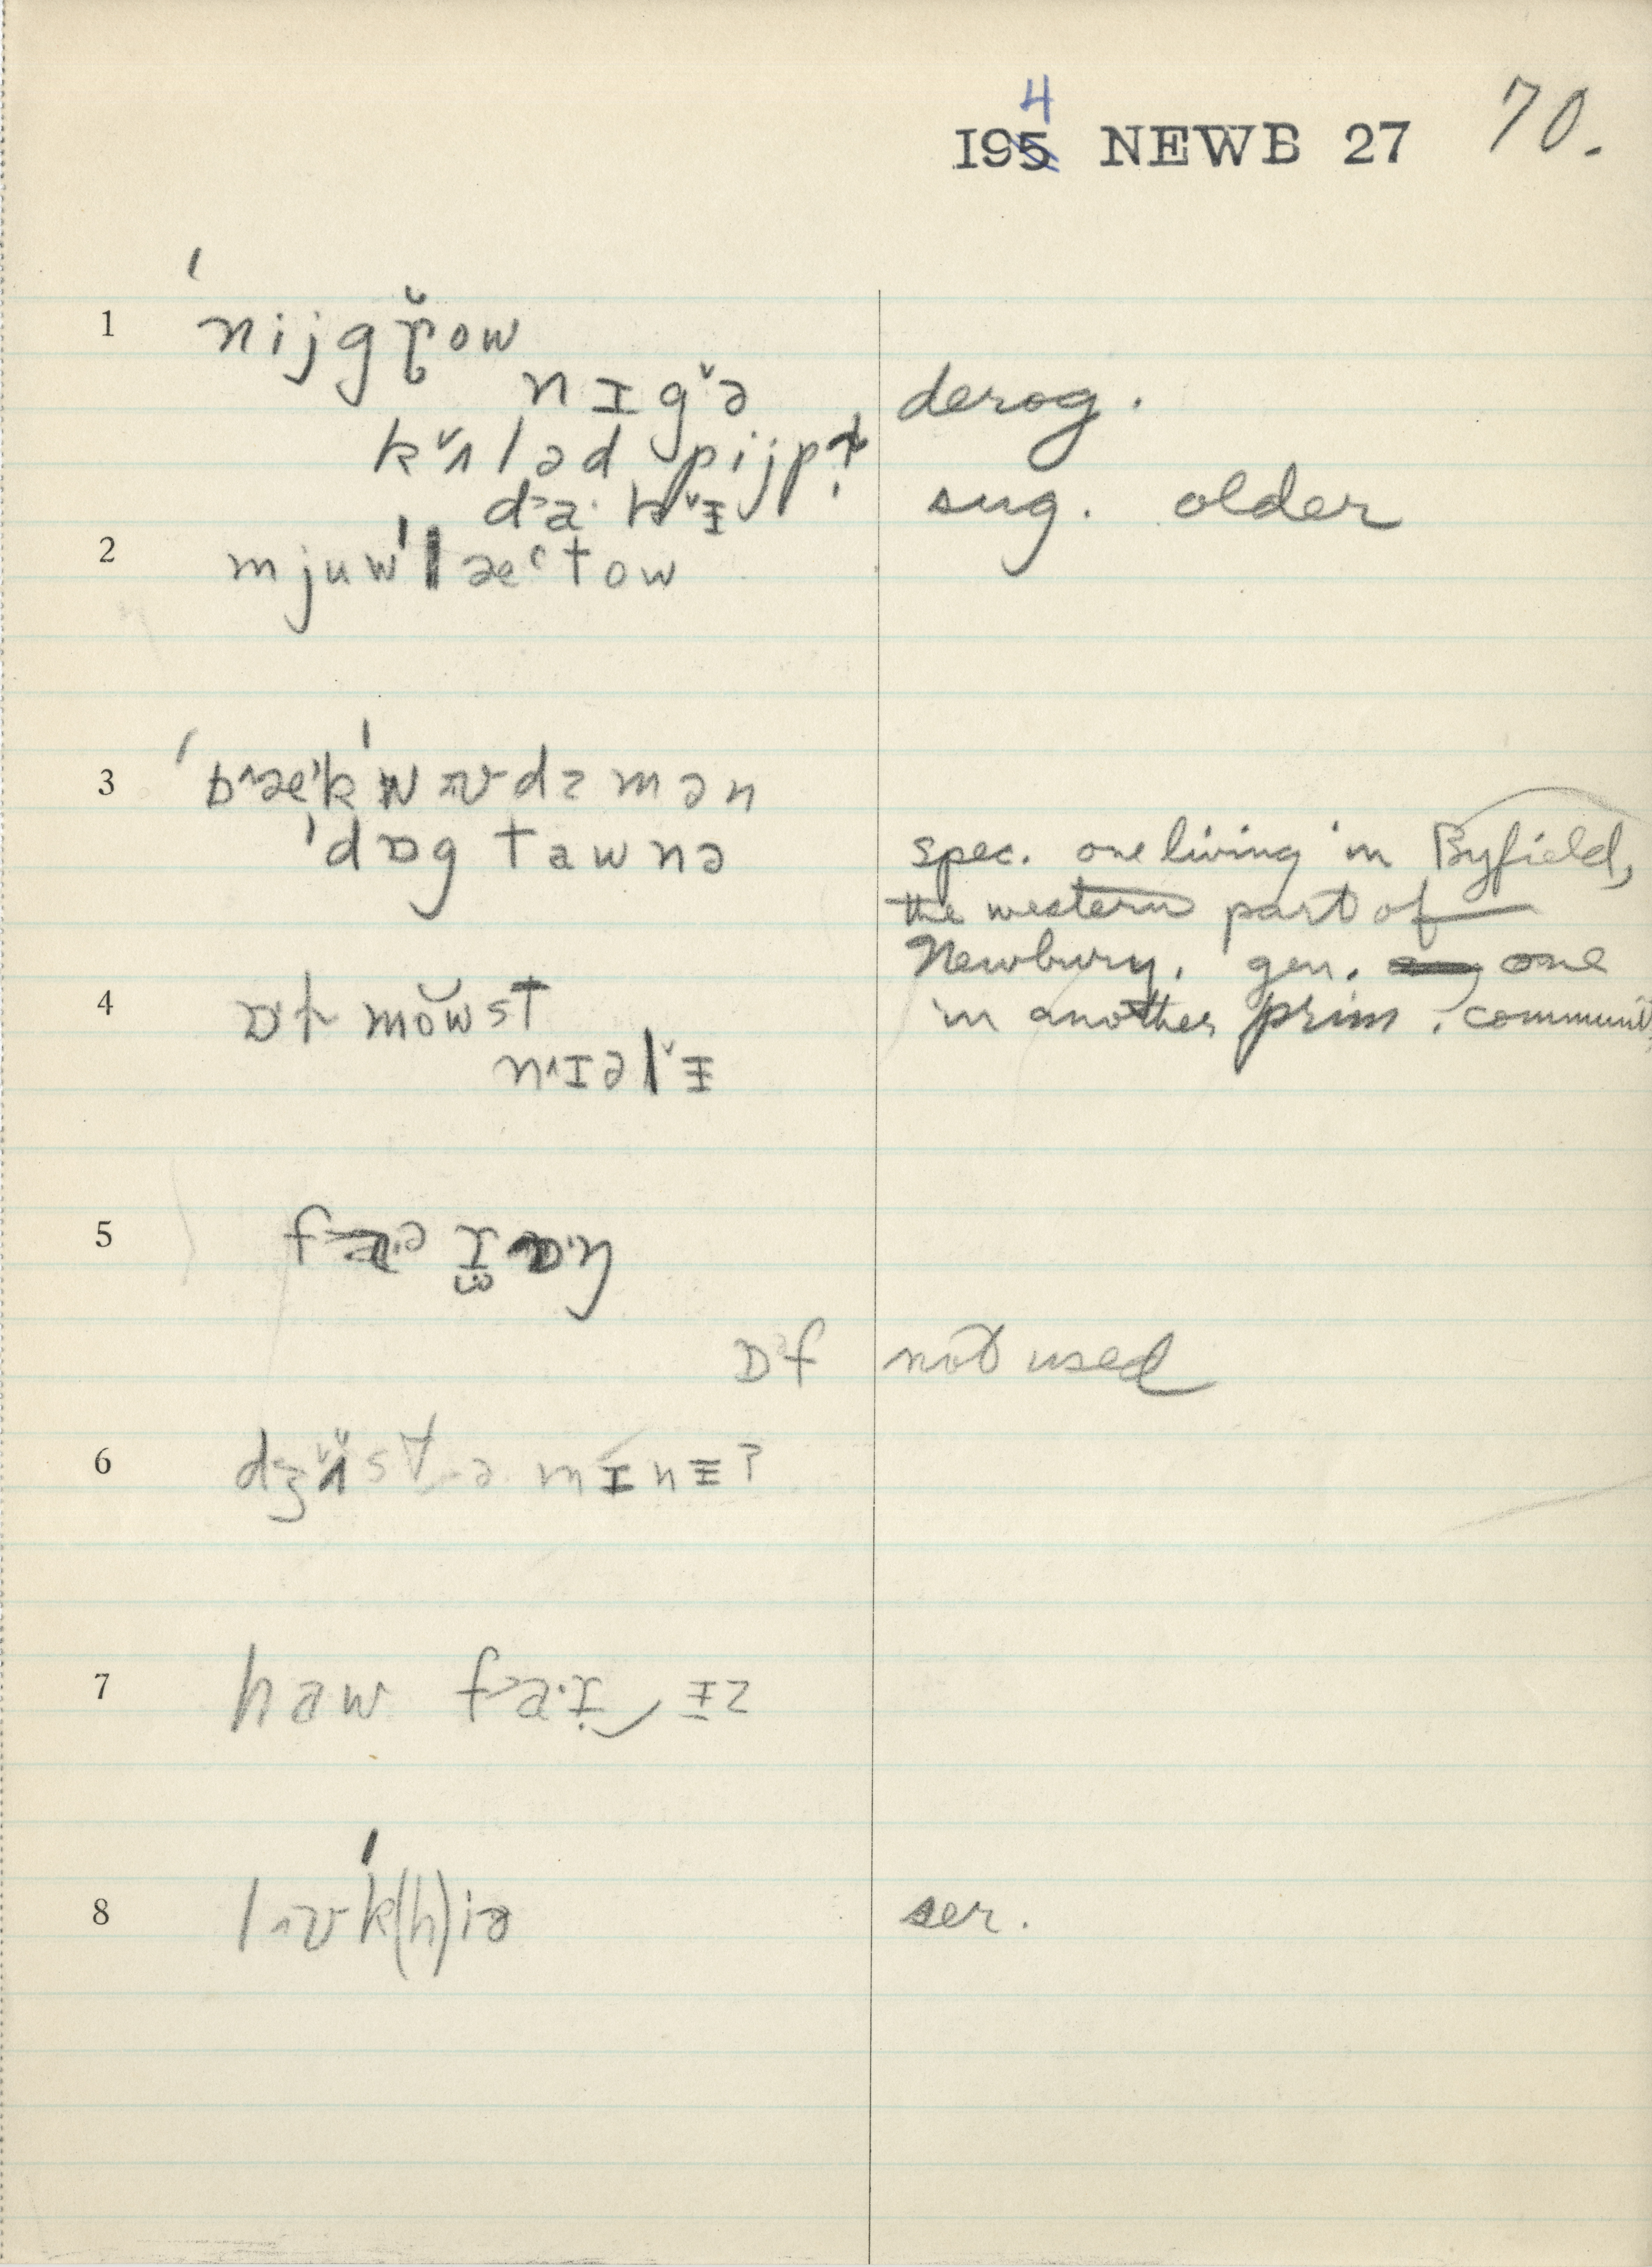 4
195 NEWB 27 70.
1 ˈnijgɽ̆ow
nɪg˅ə derog.
k˅ʌləd pijpɫ̩
d˃a· k˅ɪ̵ sug. older
2 mjuwˈlætow
3 ˈb˄ækˈwʊdzmən
ˈdɒgtawnə spec. one living in Byfield,
the western part of
Newbury. gen. one
4 ɒɫmŏw̆st in another prim. communit
n˄ɪəl˅ɪ̵
5
ɒf not used
6 dʒ˅ʌst ə mɪnɪ̵?
7 haw f˃a·ɪ̣‿ɪ̵z
8 l˄ʊˈk(h)iə ser.